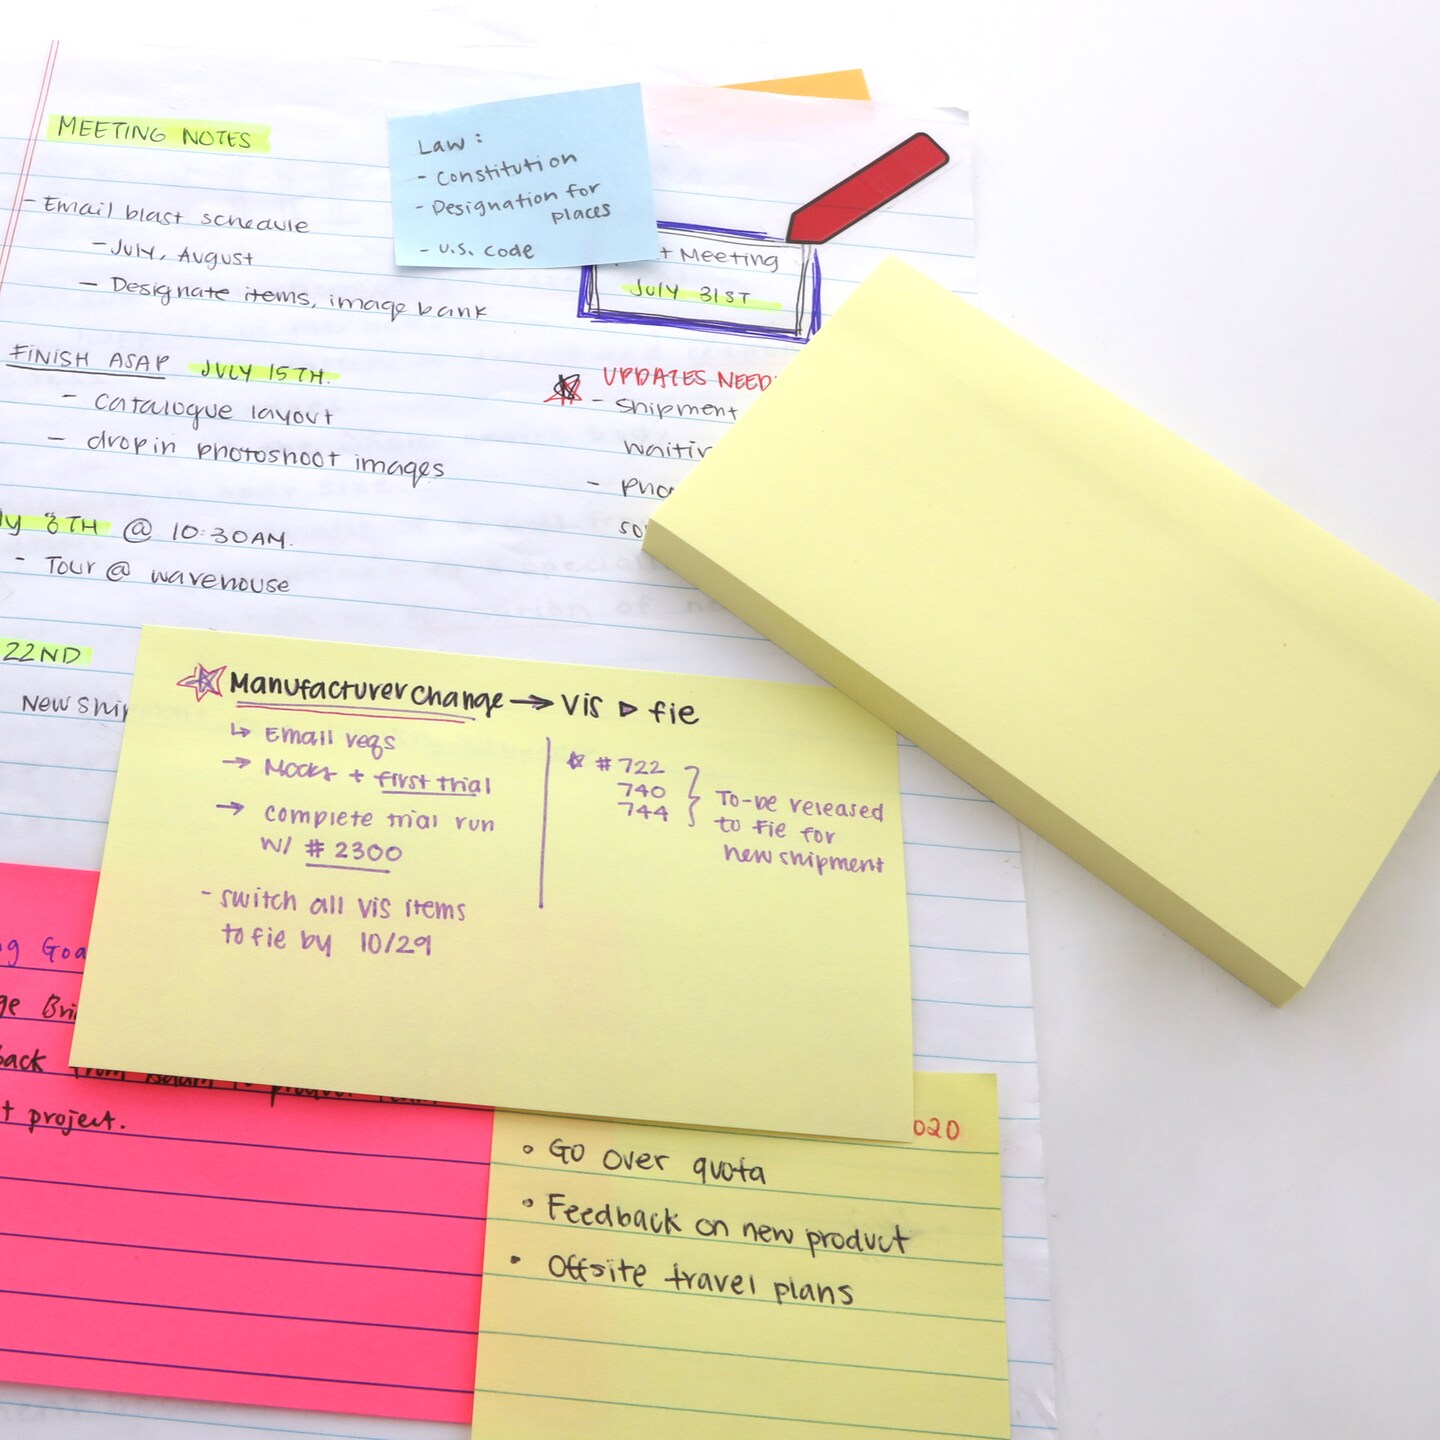 MEETING NOTES
- Email blast schedule
- July, August
- Designate items, image bank
FINISH ASAP JULY 15TH.
- catalogue layout
- drop in photoshoot images
8TH @ 10:30AM.
- Tour @ warehouse
22ND
New
Law :
- Constitution
- Designation for
places
- U.S. code
Meeting
July 31ST
UPDATES
- Shipment
-
Manufacturer Change → Vis ▷ fie
↳ Email reqs
→ Mocks + first trial
→ complete trial run
w/ # 2300
- switch all vis items
to fie by 10/29
☆ # 722
740
744
To-be released
to fie for
new shipment
project.
• Go over quota
• Feedback on new product
• Offsite travel plans